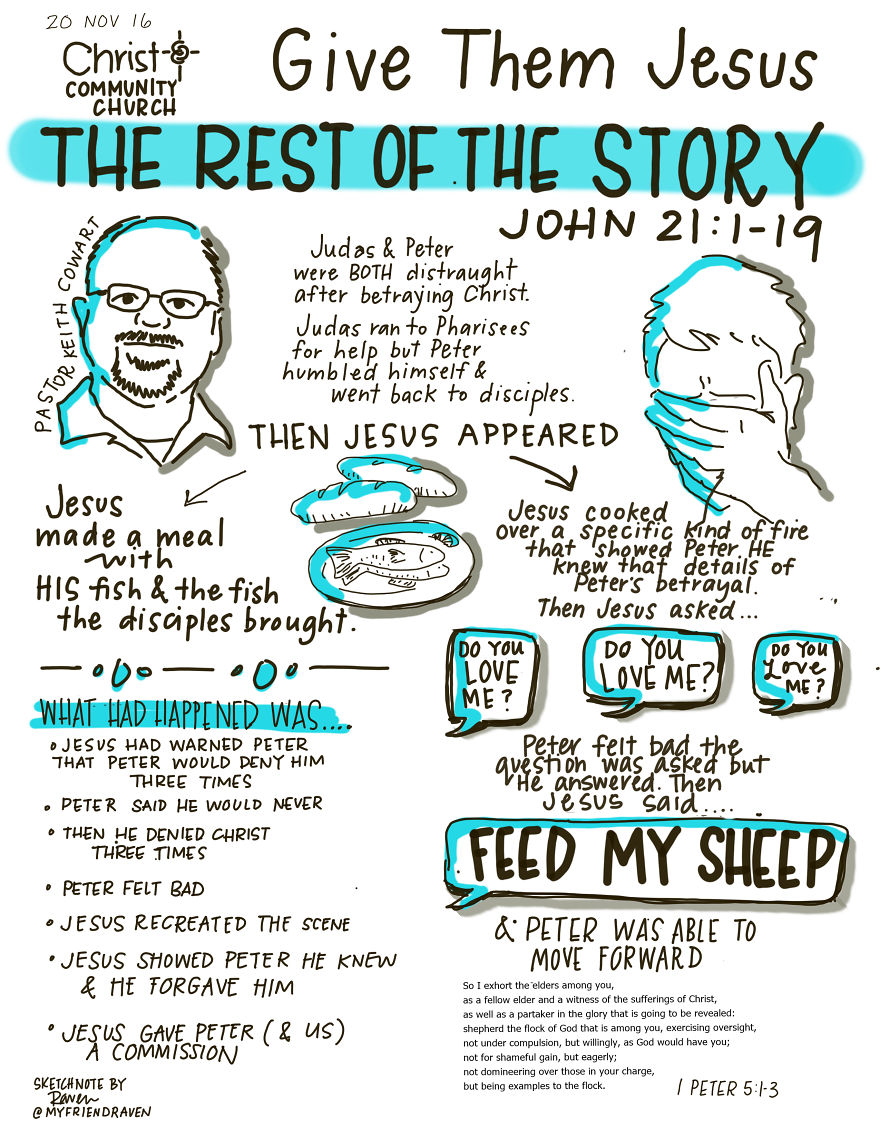 20 NOV 16
Christ
COMMUNITY
CHURCH
Give Them Jesus
THE REST OF THE STORY
JOHN 21:1-19
PASTOR KEITH COWART
Judas & Peter
were BOTH distraught
after betraying Christ.
Judas ran to Pharisees
for help but Peter
humbled himself &
went back to disciples.
THEN JESUS APPEARED
Jesus
made a meal
with
HIS fish & the fish
the disciples brought.
Jesus cooked
over a specific kind of fire
that showed Peter HE
knew that details of
Peter's betrayal.
Then Jesus asked...
DO YOU
LOVE
ME?
DO YOU
LOVE ME?
DO YOU
Love
ME?
Peter felt bad the
question was asked but
He answered. Then
Jesus said....
FEED MY SHEEP
& PETER WAS ABLE TO
MOVE FORWARD
WHAT HAD HAPPENED WAS....
• JESUS HAD WARNED PETER
THAT PETER WOULD DENY HIM
THREE TIMES
• PETER SAID HE WOULD NEVER
• THEN HE DENIED CHRIST
THREE TIMES
• PETER FELT BAD
• JESUS RECREATED THE SCENE
• JESUS SHOWED PETER HE KNEW
& HE FORGAVE HIM
• JESUS GAVE PETER (& US)
A COMMISSION
So I exhort the elders among you,
as a fellow elder and a witness of the sufferings of Christ,
as well as a partaker in the glory that is going to be revealed:
shepherd the flock of God that is among you, exercising oversight,
not under compulsion, but willingly, as God would have you;
not for shameful gain, but eagerly;
not domineering over those in your charge,
but being examples to the flock.
1 PETER 5:1-3
SKETCHNOTE BY
Raven
@MYFRIENDRAVEN